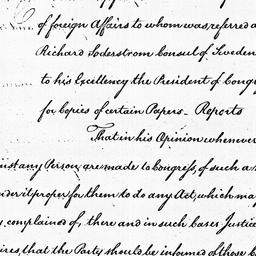 of foreign Affairs to whom was referred a
Richard Soderstrom Consul of Sweden
to his Excellency the President of Congr
for copies of certain Papers - Reports
That in his Opinion whenever
inst any Person, are made to Congress, of such a
nder it proper for them to do any Act, which may
complained of, there and in such Cases Justice
ires, that the Party should be informed of those